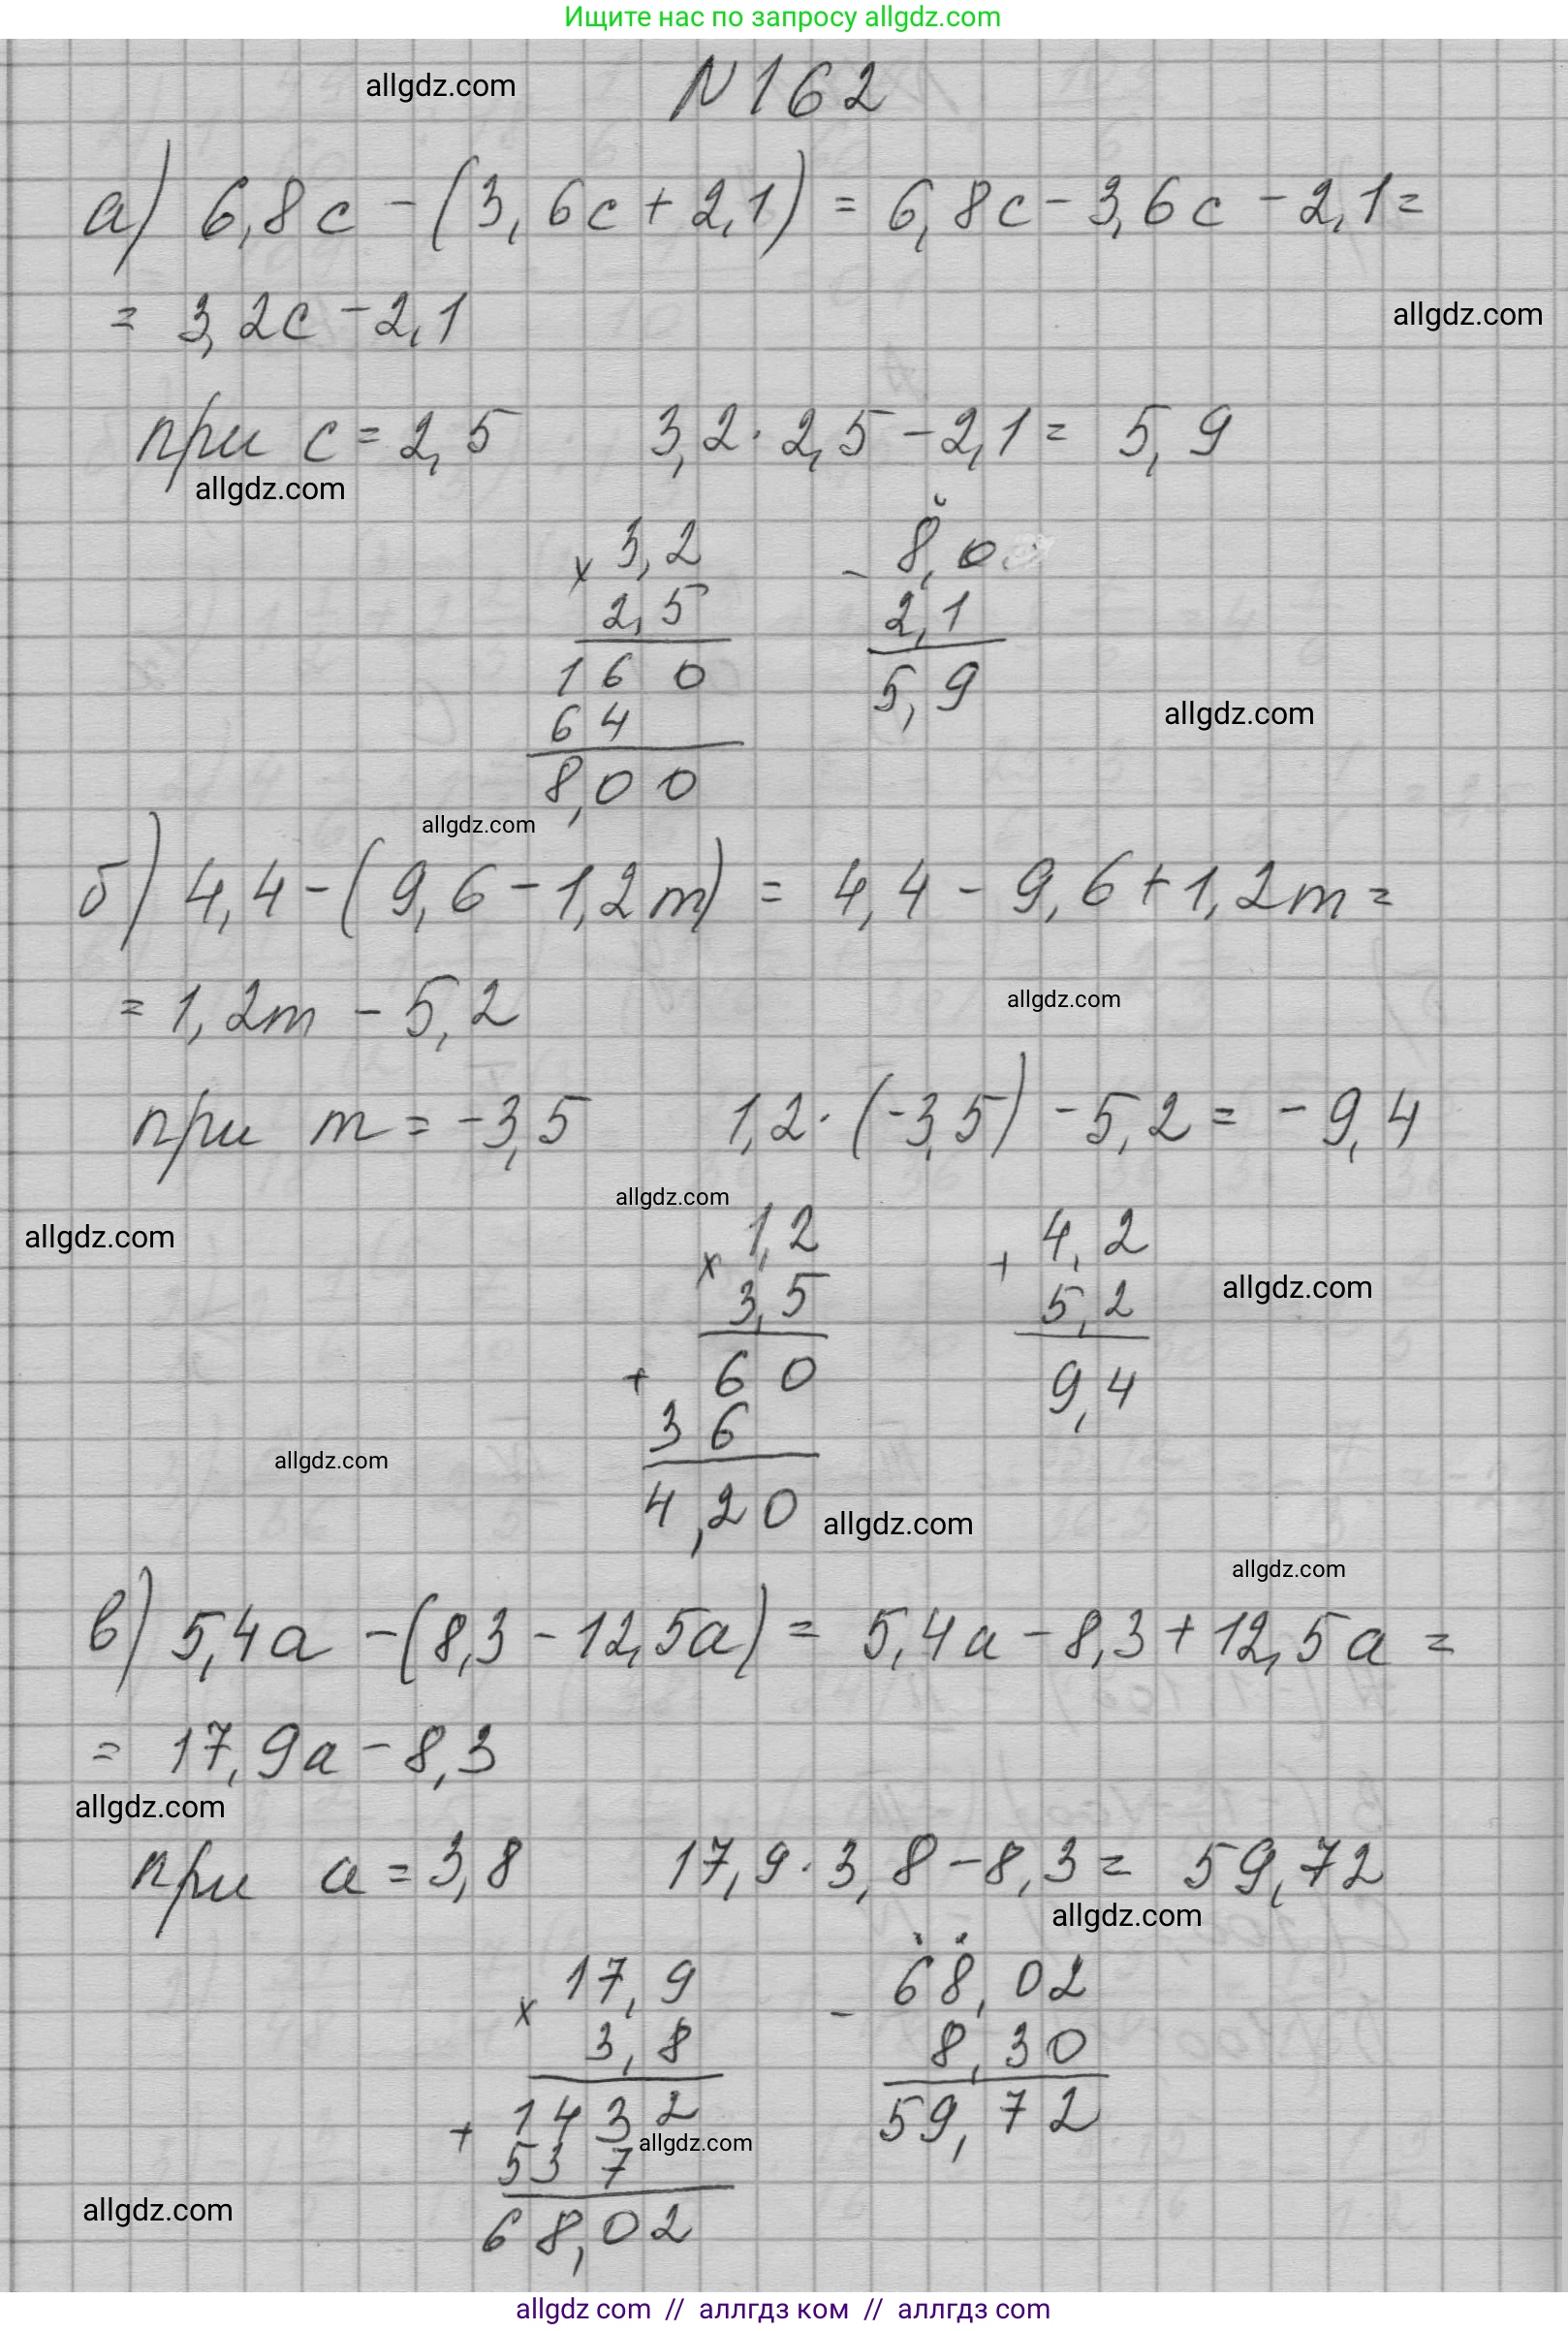 Ищите нас по запросу allgdz.com
allgdz.com
N 162
а) 6,8c - (3,6c + 2,1) = 6,8c - 3,6c - 2,1 =
= 3,2c - 2,1
allgdz.com
при c = 2,5 3,2 · 2,5 - 2,1 = 5,9
allgdz.com
× 3,2 - 8,0
2,5 2,1
160 5,9
64
allgdz.com
8,00
allgdz.com
б) 4,4 - (9,6 - 1,2m) = 4,4 - 9,6 + 1,2m =
= 1,2m - 5,2
allgdz.com
при m = -3,5 1,2 · (-3,5) - 5,2 = -9,4
allgdz.com
allgdz.com
× 1,2 + 4,2
3,5 5,2
allgdz.com
+ 60 9,4
36
allgdz.com
4,20
allgdz.com
allgdz.com
в) 5,4a - (8,3 - 12,5a) = 5,4a - 8,3 + 12,5a =
= 17,9a - 8,3
allgdz.com
при a = 3,8 17,9 · 3,8 - 8,3 = 59,72
allgdz.com
× 17,9 - 68,02
3,8 8,30
+ 1432 59,72
537
allgdz.com
allgdz.com
68,02
allgdz com // аллгдз ком // аллгдз com